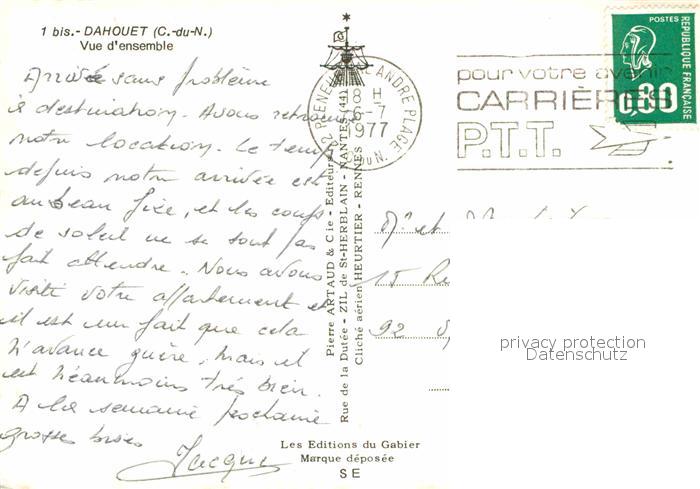 1 bis.- DAHOUET (C.-du-N.)
Vue d'ensemble
Arrivée sans problème
à destination. Avons retrouvé
notre location. Le temps
depuis notre arrivée est
au beau fixe, et les coups
de soleil ne se sont pas
fait attendre. Nous avons
visité votre appartement et
il est un fait que cela
n'avance guère, mais il
est néanmoins très bien.
A la semaine prochaine
grosses bises
Jacques
Pierre ARTAUD & Cie - Editeurs
Rue de la Dutée - ZIL de St-HERBLAIN - NANTES (44)
Cliché aérien HEURTIER - RENNES
Les Editions du Gabier
Marque déposée
S E
22 PLENEUF VAL ANDRE PLAGE
18 H
6-7
1977
C. DU N.
pour votre avenir
CARRIÈRES
P.T.T.
POSTES
REPUBLIQUE FRANÇAISE
0,80
Mr et
15 Ru
92
privacy protection
Datenschutz